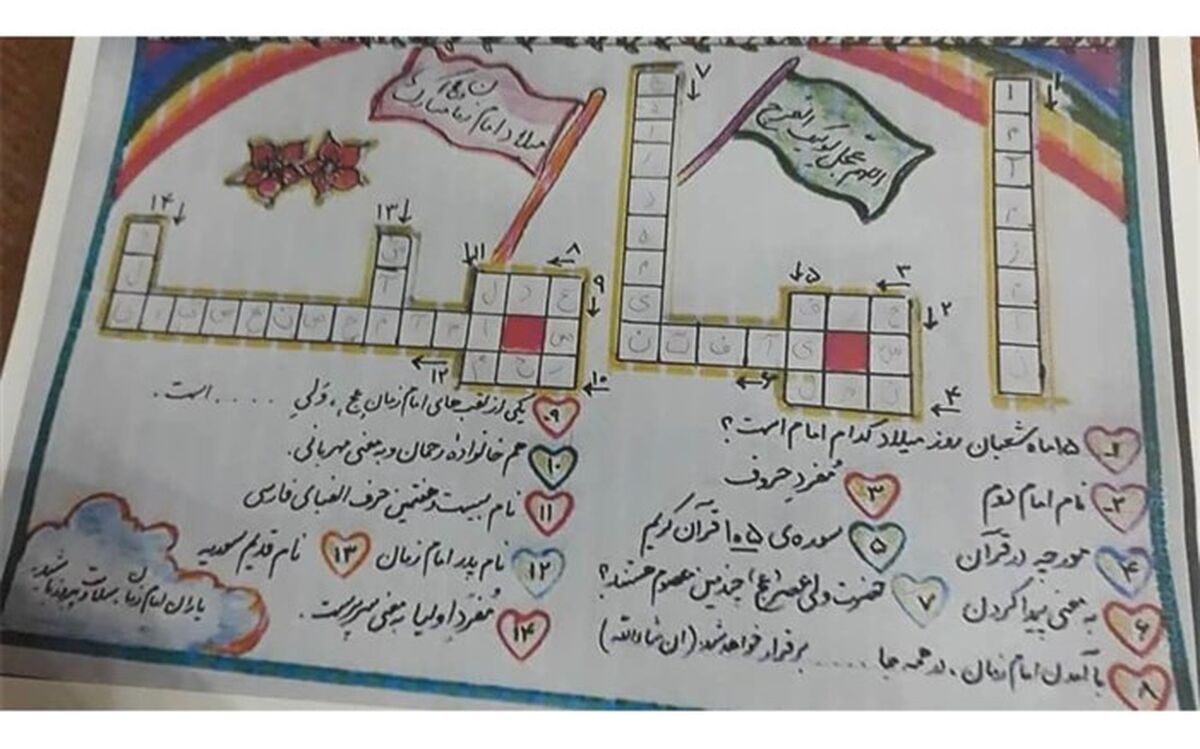 میلاد امام زمان (عج) مبارک
اللهم عجل لولیک الفرج
۱
ا
م
ا
م
ز
م
ا
ن
۲
۳
۴
۵
۶
۷
ع د ل
۸
۹
۱۰
۱۱
۱۲
۱۳
۱۴
ی ا ف ت ن
۱- ۱۵ ماه شعبان روز میلاد کدام امام است؟
۲- نام امام دوم
۳ مفرد حروف
۴ مورچه در قرآن
۵ سوره‌ی ۱۰۵ قرآن کریم
۶ به معنی پیدا کردن
۷ حضرت ولی عصر (عج) چندمین معصوم هستند؟
۸ با آمدن امام زمان، در همه جا ..... برقرار خواهد شد (ان شاءالله)
۹. یکی از لقب های امام زمان عج، ولیِ ..... است.
۱۰ هم خانواده رحمان و به معنی مهربانی.
۱۱ نام بیست و هفتمین حرف الفبای فارسی
۱۲ نام پدر امام زمان
۱۳ نام قدیم سوریه
۱۴ مفرد اولیا به معنی سرپرست.
یاران امام زمان سلامت و پیروز باشید.